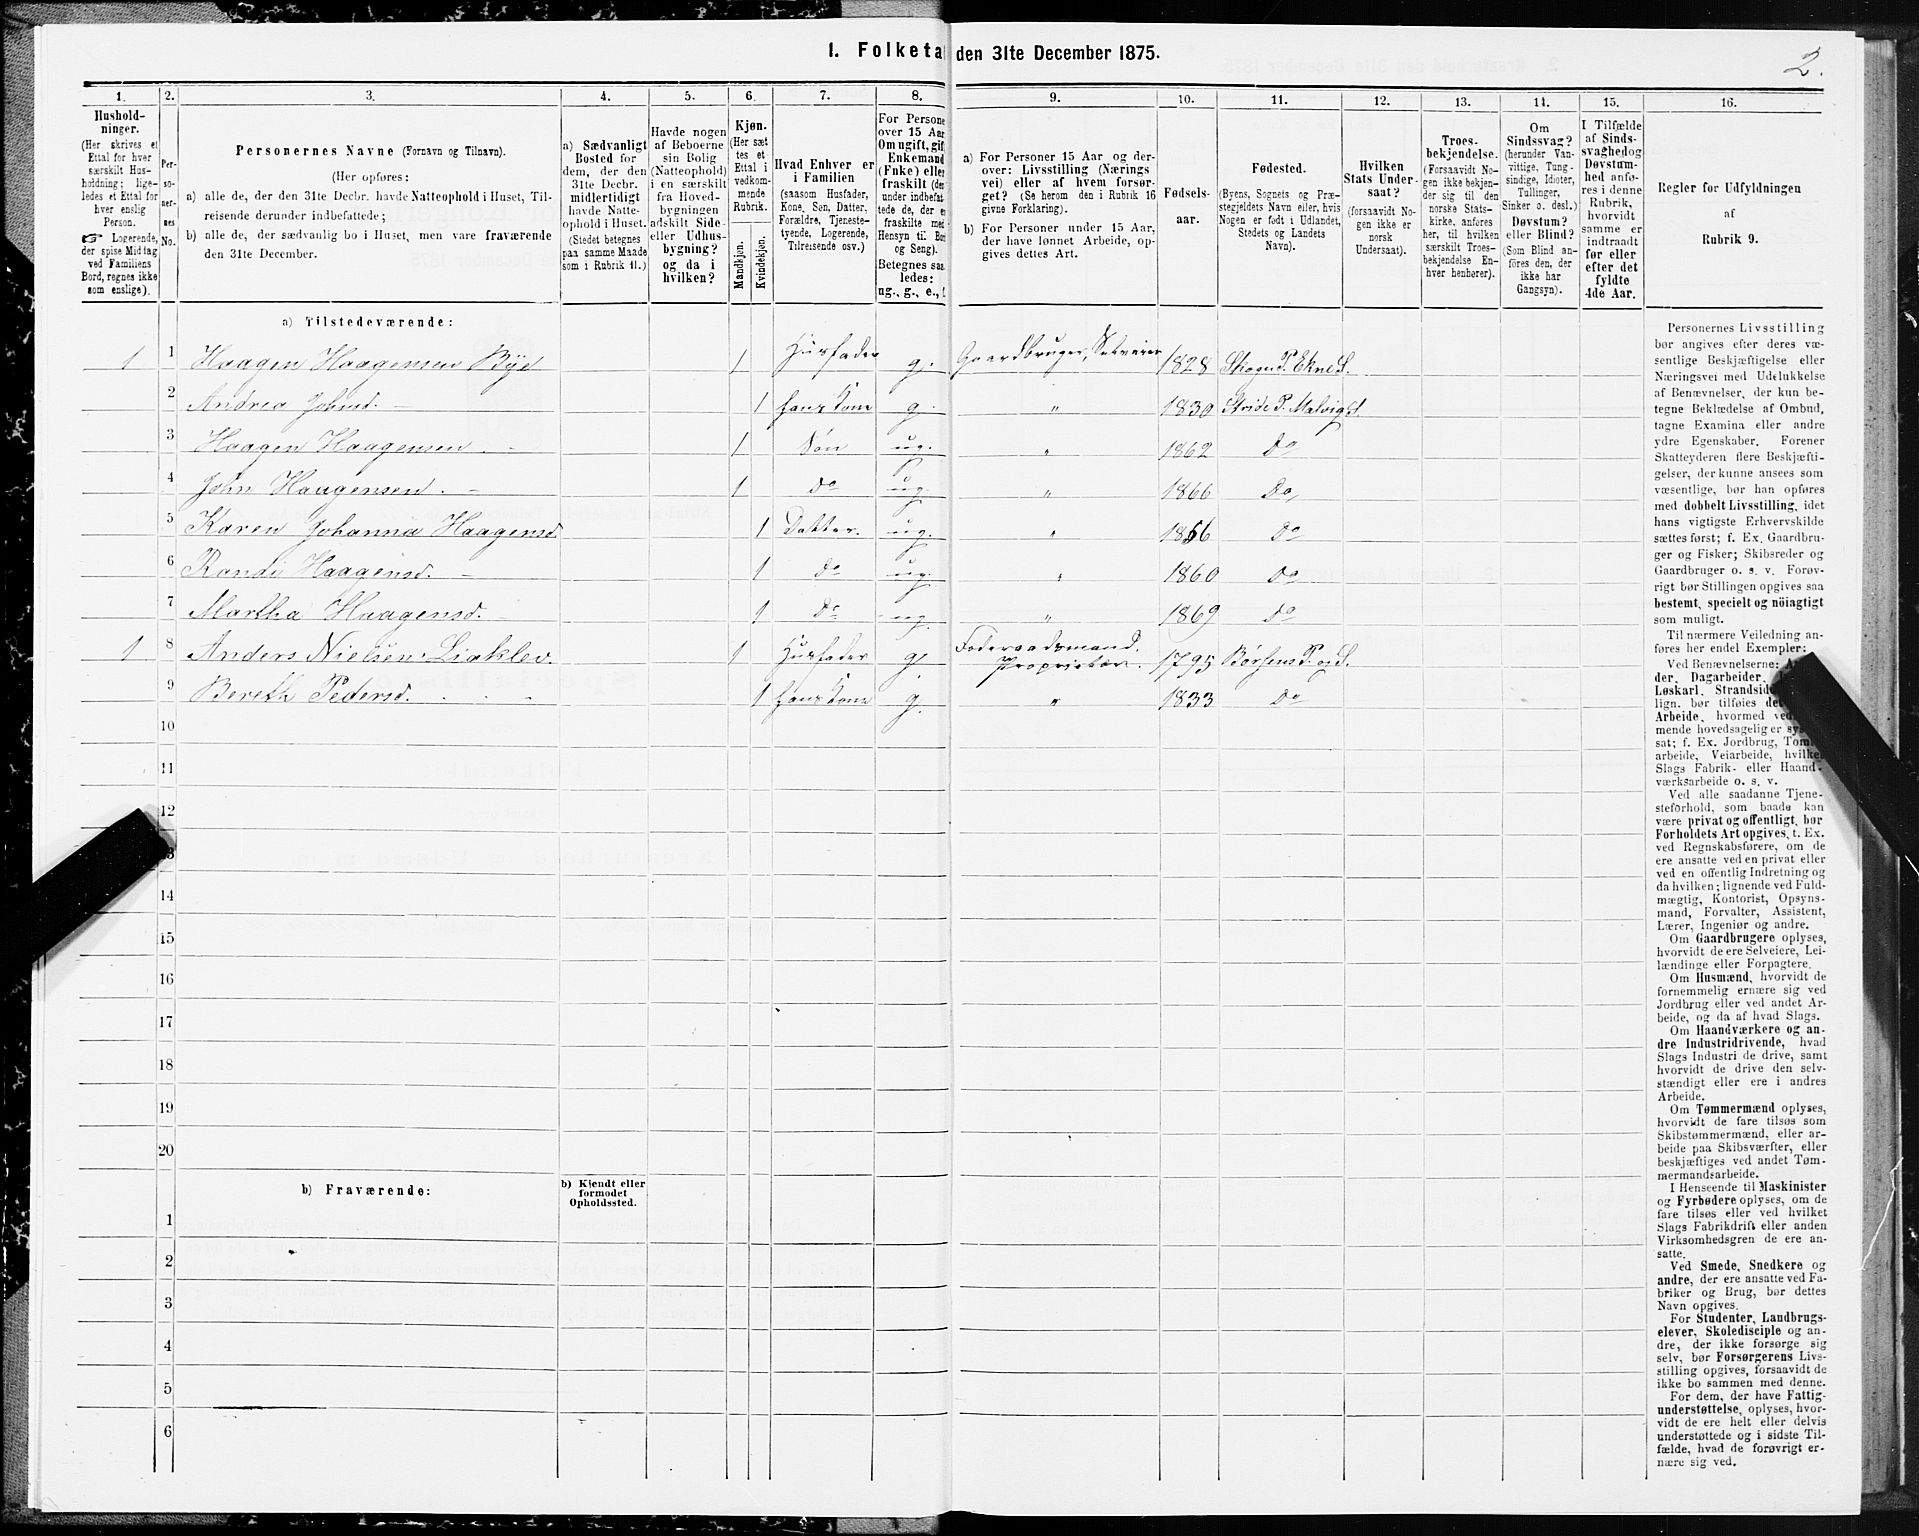 1. Folketa den 31te December 1875.
2.
1. 2. 3. 4. 5. 6. 7. 8. 9. 10. 11. 12. 13. 14. 15. 16.
Hushold-
ninger.
(Her skrives et
Ettal for hver
særskilt Hus-
holdning; lige-
ledes et Ettal for
hver enslig
Person.
☞ Logerende,
der spise Middag
ved Familiens
Bord, regnes ikke
som enslige).
Per-
so-
ner-
nes
No.
Personernes Navne (Fornavn og Tilnavn).
(Her opføres:
a) alle de, der den 31te Decbr. havde Natteophold i Huset, Til-
reisende derunder indbefattede;
b) alle de, der sædvanlig bo i Huset, men vare fraværende
den 31te December.
a) Sædvanligt
Bosted for
dem, der den
31te Decbr.
midlertidigt
havde Natte-
ophold i Huset.
(Stedet betegnes
paa samme Maade
som i Rubrik 11.)
Havde nogen
af Beboerne
sin Bolig
(Natteophold)
i en særskilt
fra Hoved-
bygningen
adskilt Side-
eller Udhus-
bygning?
og da i
hvilken?
Kjøn.
(Her sæt
tes et
Ettal i
vedkom-
mende
Rubrik.
Mandkjøn.
Kvindekjøn.
Hvad Enhver er
i Familien
(saasom Husfader,
Kone, Søn, Datter,
Forældre, Tjeneste-
tyende, Logerende,
Tilreisende osv.)
For Persone
over 15 Aar
Om ugift, gif
Enkemand
(Enke) eller
fraskilt (der
under indbefat
tede de, der er
fraskilte med
Hensyn til Bo
og Seng).
Betegnes saa
ledes:
ug., g., e., f
a) For Personer 15 Aar og der-
over: Livsstilling (Nærings
vei) eller af hvem forsør-
get? (Se herom den i Rubrik 16
givne Forklaring).
b) For Personer under 15 Aar,
der have lønnet Arbeide, op-
gives dettes Art.
Fødsels-
aar.
Fødested.
(Byens, Sognets og Præ-
stegjeldets Navn eller, hvis
Nogen er født i Udlandet,
Stedets og Landets
Navn).
Hvilken
Stats Under-
saat?
(forsaavidt No-
gen ikke er
norsk
Undersaat).
Troes-
bekjendelse.
(Forsaavidt No-
gen ikke bekjen-
der sig til den
norske Stats-
kirke, anføres
her, til hvilken
særskilt Troes-
bekjendelse En-
hver henhører).
Om
Sindssvag?
(herunder Van-
vittige, Tung-
sindige, Idioter,
Tullinger,
Sinker o. desl.)
Døvstum?
eller Blind?
(Som Blind an-
føres den, der
ikke har
Gangsyn).
I Tilfælde
af Sinds-
svaghed og
Døvstum-
hed anfø-
res i denne
Rubrik,
hvorvidt
samme er
indtraadt
før eller
efter det
fyldte
4de Aar.
Regler for Udfyldningen
af
Rubrik 9.
a) Tilstedeværende:
1 1 Haagen Haagensen Bye 1 Husfader g. Gaardbruger, Selveier 1828 Skogns P. Ekne S.
2 Andrea Johnsd. 1 hans Kone g. " 1830 Strinde P. Malvig S.
3 Haagen Haagensen 1 Søn ug. " 1862 Do
4 John Haagensen. 1 do ug. " 1866 Do
5 Karen Johanna Haagensd. 1 Datter. ug. " 1856 Do
6 Randi Haagensd. 1 do ug. " 1860 Do
7 Martha Haagensd. 1 Do ug. " 1869 Do
1 8 Anders Nielsen Liaklev. 1 Husfader g. Foderaadsmand. Proprietær. 1795 Børsens P. og S.
9 Bereth Pedersd. 1 hans Kone g. " 1833 Do
10
11
12
13
14
15
16
17
18
19
20
b) Fraværende:
b) Kjendt eller
formodet
Opholdssted.
1
2
3
4
5
6
Personernes Livsstilling
bør angives efter deres væ-
sentlige Beskjæftigelse eller
Næringsvei med Udelukkelse
af Benævnelser, der kun be-
tegne Beklædelse af Ombud,
tagne Examina eller andre
ydre Egenskaber. Forener
Skatteyderen flere Beskjæfti-
gelser, der kunne ansees som
væsentlige, bør han opføres
med dobbelt Livsstilling, idet
hans vigtigste Erhvervskilde
sættes først; f. Ex. Gaardbru-
ger og Fisker; Skibsreder og
Gaardbruger o. s. v. Forøv-
rigt bør Stillingen opgives saa
bestemt, specielt og nöiagtigt
som muligt.
Til nærmere Veiledning an-
føres her endel Exempler:
Ved Benævnelserne: A
der, Dagarbeider,
Løskarl, Strandsid
lign. bør tilføies de
Arbeide, hvormed ved
mende hovedsagelig er sys
sat; f. Ex. Jordbrug, Tom
arbeide, Veiarbeide, hvilke
Slags Fabrik- eller Haand-
værksarbeide o. s. v.
Ved alle saadanne Tjene-
steforhold, som baade kan
være privat og offentligt, bør
Forholdets Art opgives, t. Ex.
ved Regnskabsførere, om de
ere ansatte ved en privat eller
ved en offentlig Indretning og
da hvilken; lignende ved Fuld-
mægtig, Kontorist, Opsyns-
mand, Forvalter, Assistent,
Lærer, Ingeniør og andre.
Om Gaardbrugere oplyses,
hvorvidt de ere Selveiere, Lei-
lændinge eller Forpagtere.
Om Husmænd, hvorvidt de
fornemmelig ernære sig ved
Jordbrug eller ved andet Ar-
beide, og da af hvad Slags.
Om Haandværkere og an-
dre Industridrivende, hvad
Slags Industri de drive, samt
hvorvidt de drive den selv-
stændigt eller ere i andres
Arbeide.
Om Tømmermænd oplyses,
hvorvidt de fare tilsøs som
Skibstømmermænd, eller ar-
beide paa Skibsværfter, eller
beskjæftiges ved andet Tøm-
mermandsarbeide.
I Henseende til Maskinister
og Fyrbødere oplyses, om de
fare tilsøs eller ved hvilket
Slags Fabrikdrift eller anden
Virksomhedsgren de ere an-
satte.
Ved Smede, Snedkere og
andre, der ere ansatte ved Fa-
briker og Brug, bør dettes
Navn opgives.
For Studenter, Landbrugs-
elever, Skoledisciple og an-
dre, der ikke forsørge sig
selv, bør Forsørgerens Livs-
stilling opgives, forsaavidt de
ikke bo sammen med denne.
For dem, der have Fattig-
understøttelse, oplyses, hvor-
vidt de ere helt eller delvis
understøttede og i sidste Til-
fælde, hvad de forøvrigt er-
nære sig ved.